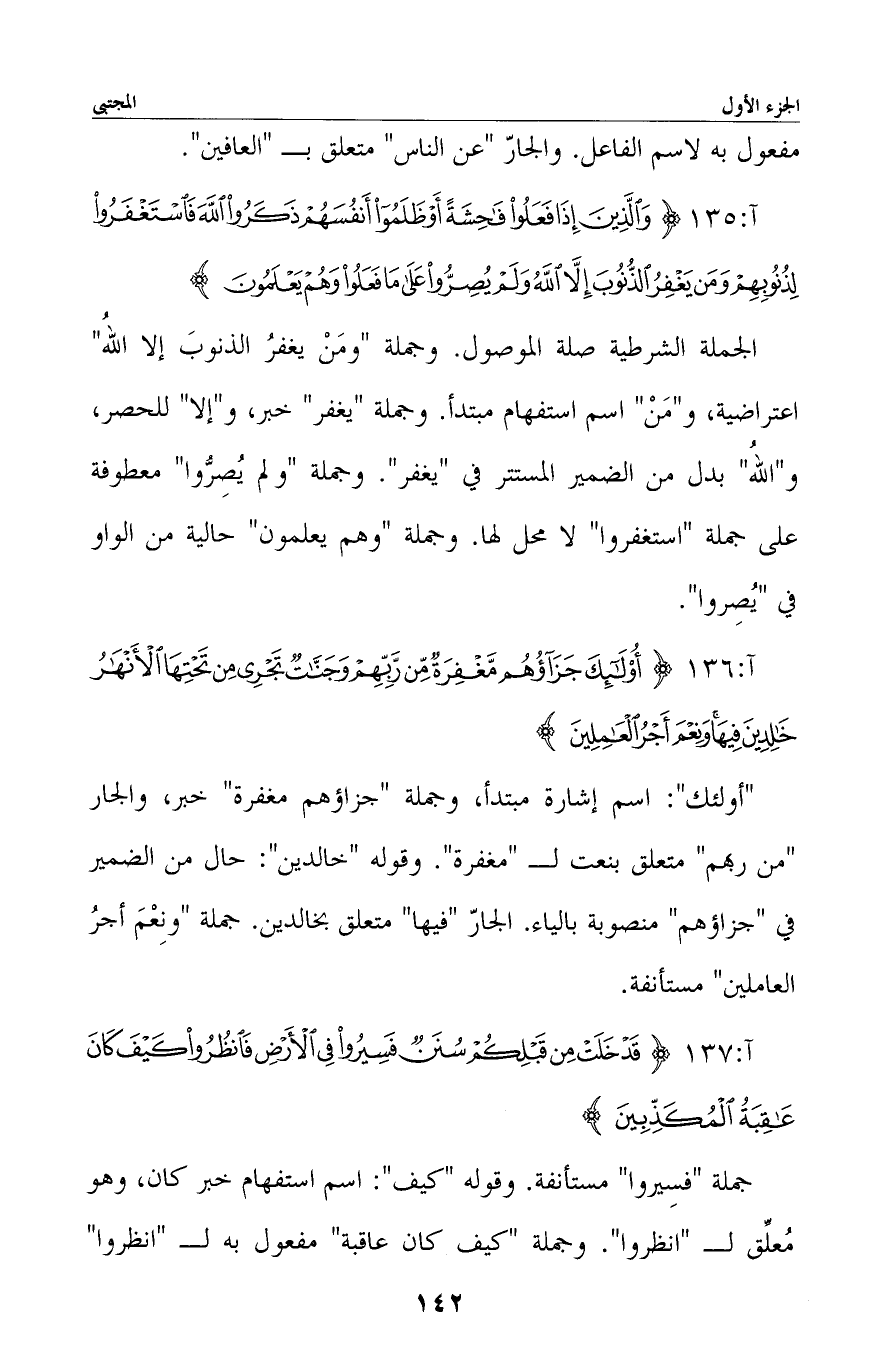 الجزء الأول المجتبى
مفعول به لاسم الفاعل. والجارّ "عن الناس" متعلق بـ "العافين".
آ:١٣٥ ﴿ وَٱلَّذِينَ إِذَا فَعَلُوا۟ فَـٰحِشَةً أَوْ ظَلَمُوٓا۟ أَنفُسَهُمْ ذَكَرُوا۟ ٱللَّهَ فَٱسْتَغْفَرُوا۟
لِذُنُوبِهِمْ وَمَن يَغْفِرُ ٱلذُّنُوبَ إِلَّا ٱللَّهُ وَلَمْ يُصِرُّوا۟ عَلَىٰ مَا فَعَلُوا۟ وَهُمْ يَعْلَمُونَ ﴾
الجملة الشرطية صلة الموصول. وجملة "ومَنْ يغفرُ الذنوبَ إلا اللهُ"
اعتراضية، و"مَنْ" اسم استفهام مبتدأ. وجملة "يغفر" خبر، و"إلا" للحصر،
و"اللهُ" بدل من الضمير المستتر في "يغفر". وجملة "ولم يُصِرُّوا" معطوفة
على جملة "استغفروا" لا محل لها. وجملة "وهم يعلمون" حالية من الواو
في "يُصِروا".
آ:١٣٦ ﴿ أُو۟لَـٰٓئِكَ جَزَآؤُهُم مَّغْفِرَةٌ مِّن رَّبِّهِمْ وَجَنَّـٰتٌ تَجْرِى مِن تَحْتِهَا ٱلْأَنْهَـٰرُ
خَـٰلِدِينَ فِيهَا ۚ وَنِعْمَ أَجْرُ ٱلْعَـٰمِلِينَ ﴾
"أولئك": اسم إشارة مبتدأ، وجملة "جزاؤهم مغفرة" خبر، والجار
"من ربهم" متعلق بنعت لـ "مغفرة". وقوله "خالدين": حال من الضمير
في "جزاؤهم" منصوبة بالياء. الجارّ "فيها" متعلق بخالدين. جملة "ونِعْمَ أجرُ
العاملين" مستأنفة.
آ:١٣٧ ﴿ قَدْ خَلَتْ مِن قَبْلِكُمْ سُنَنٌ فَسِيرُوا۟ فِى ٱلْأَرْضِ فَٱنظُرُوا۟ كَيْفَ كَانَ
عَـٰقِبَةُ ٱلْمُكَذِّبِينَ ﴾
جملة "فسِيروا" مستأنفة. وقوله "كيف": اسم استفهام خبر كان، وهو
مُعلِّق لـ "انظروا". وجملة "كيف كان عاقبة" مفعول به لـ "انظروا"
١٤٢